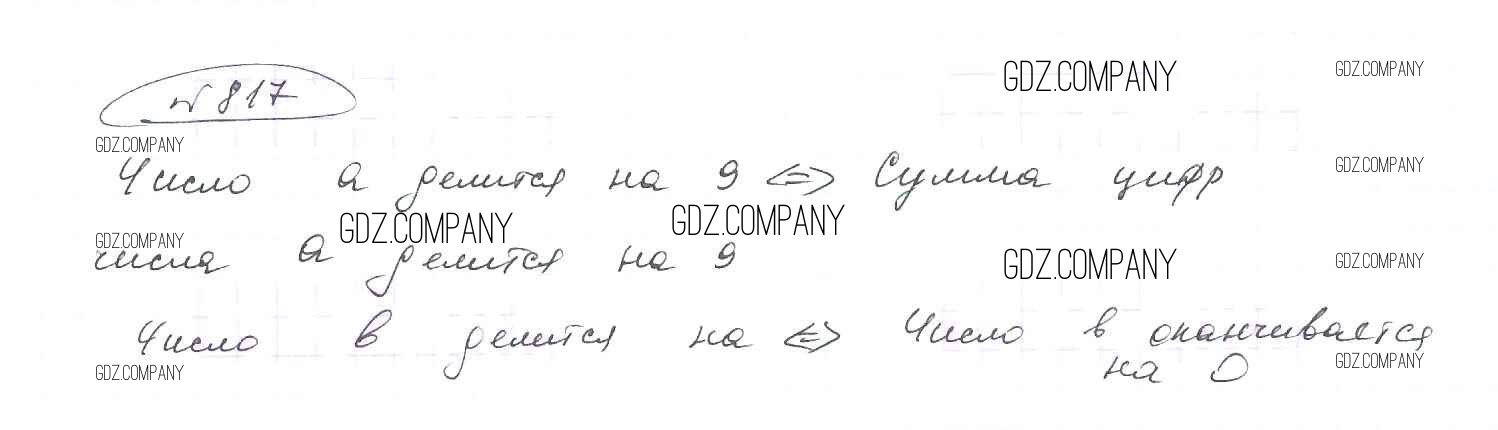 № 817
GDZ.COMPANY GDZ.COMPANY
GDZ.COMPANY
Число а делится на 9 <=> Сумма цифр
GDZ.COMPANY
GDZ.COMPANY GDZ.COMPANY
GDZ.COMPANY
числа а делится на 9
GDZ.COMPANY GDZ.COMPANY
Число в делится на <=> Число в оканчивается
на 0
GDZ.COMPANY GDZ.COMPANY